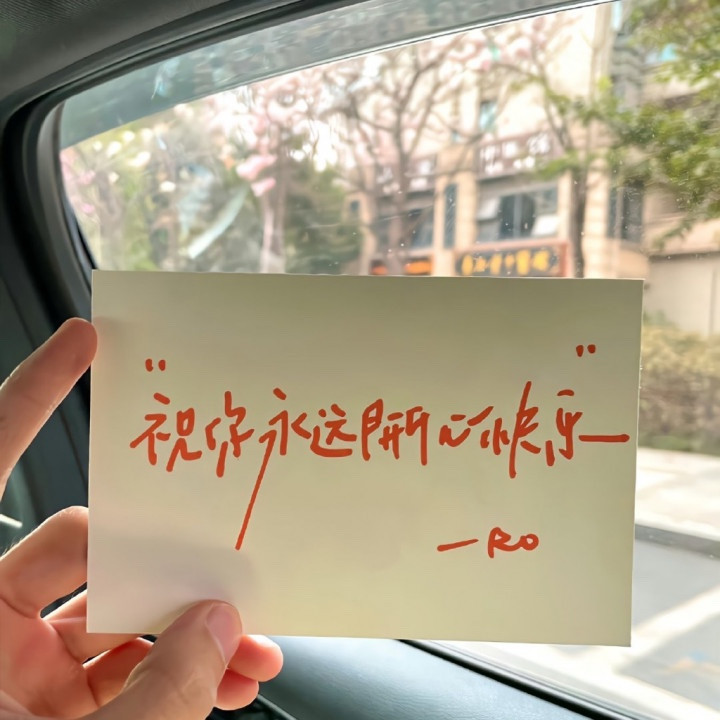 "祝你永远開心快乐"
—Ro